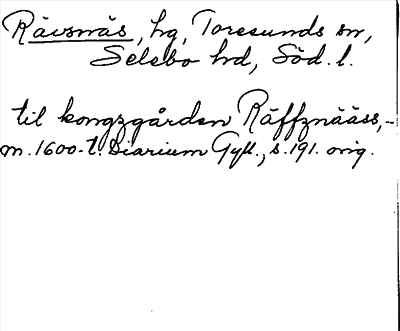 Rävsnäs, hg, Toresunds sn,
Selebo hd, Söd. l.
til kongzgården Räffznääss,-
m.1600-t. Diarium Gyll., s.191. orig.